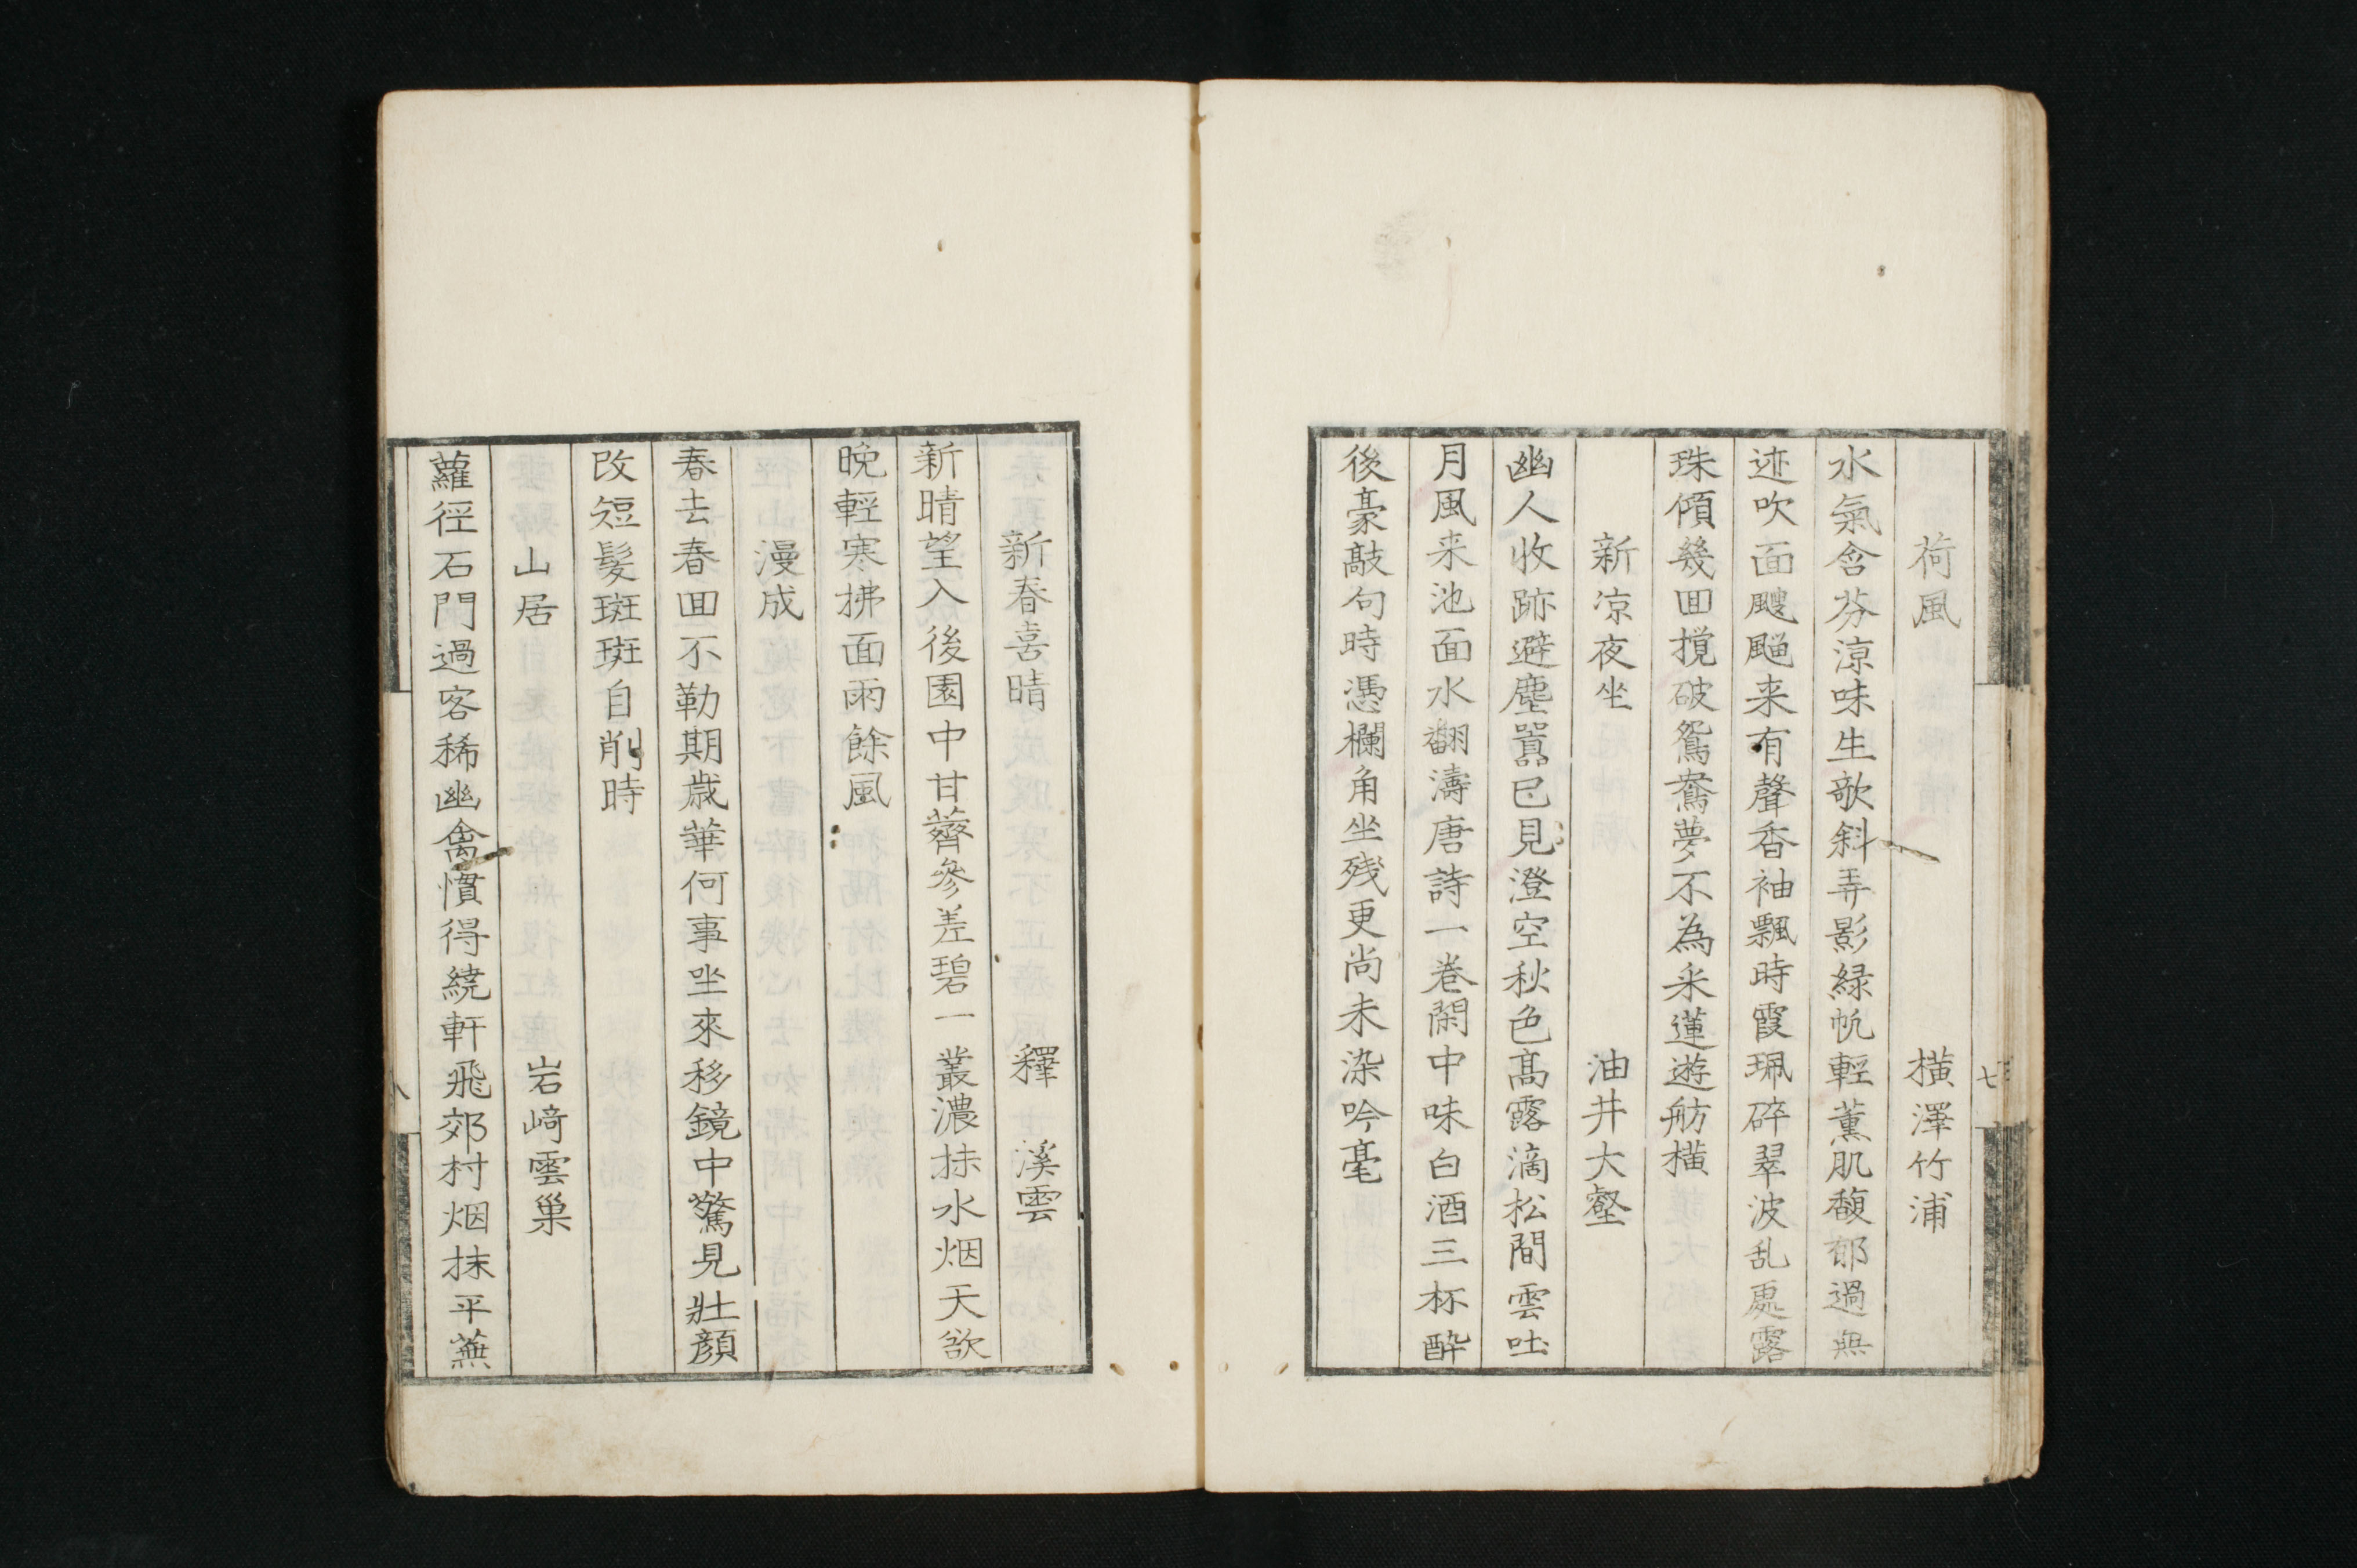 荷風 横澤竹浦
水氣含芬涼味生欹斜弄影緑帆輕薫肌馥郁過無
迹吹面颼飀来有聲香袖飄時霞珮碎翠波乱處露
珠傾幾回撹破鴛鴦夢不為采蓮遊舫横
新凉夜坐 油井大壑
幽人收跡避塵囂已見澄空秋色髙露滴松間雲吐
月風来池面水翻濤唐詩一巻閑中味白酒三杯酔
後豪敲句時憑欄角坐残更尚未染吟毫
七
新春喜晴 釋 溪雲
新晴望入後園中甘薺參差碧一叢濃抹水烟天欲
晩輕寒拂面雨餘風
漫成
春去春回不勒期歳華何事坐來移鏡中驚見壯顔
改短髮斑斑自削時
山居 岩﨑雲巢
蘿徑石門過客稀幽禽慣得繞軒飛郊村烟抹平蕪
八